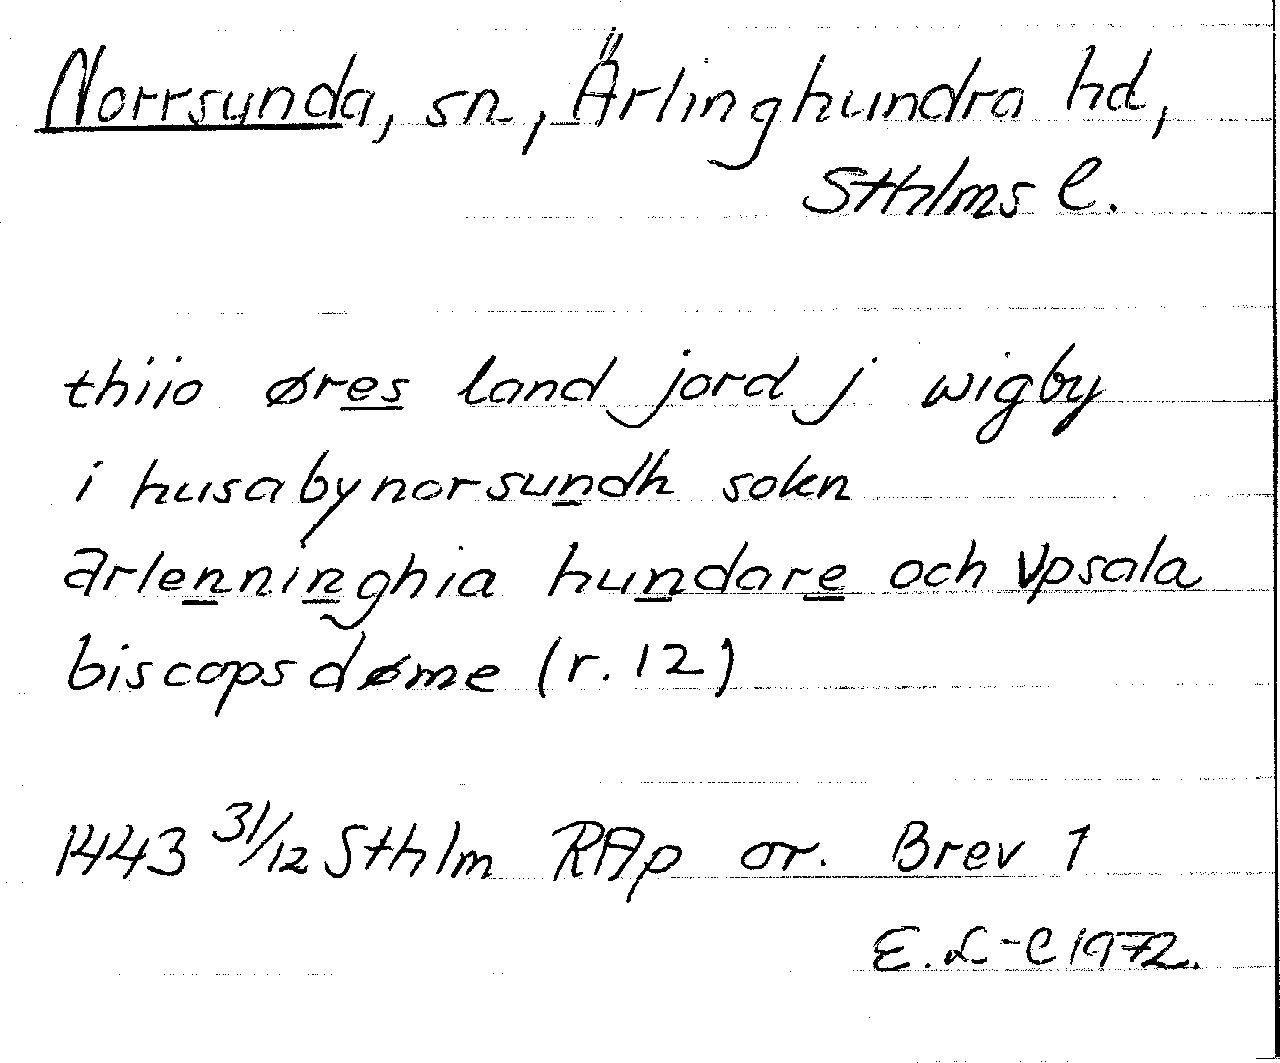 Norrsunda, sn, Ärlinghundra hd,
Sthlms l.
thijo øres land jord j wigby
i husabynorsundh sokn
arlenninghia hundare och Vpsala
biscopsdøme (r. 12)
1443 31/12 Sthlm RAp or. Brev 1
E. L-C 1972.